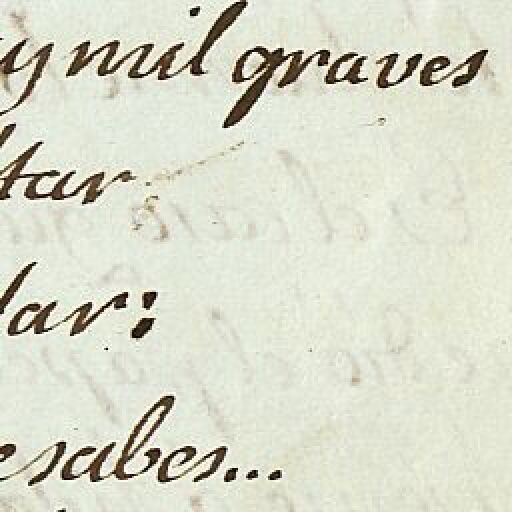 y mil graves
tar
dar:
esabes...